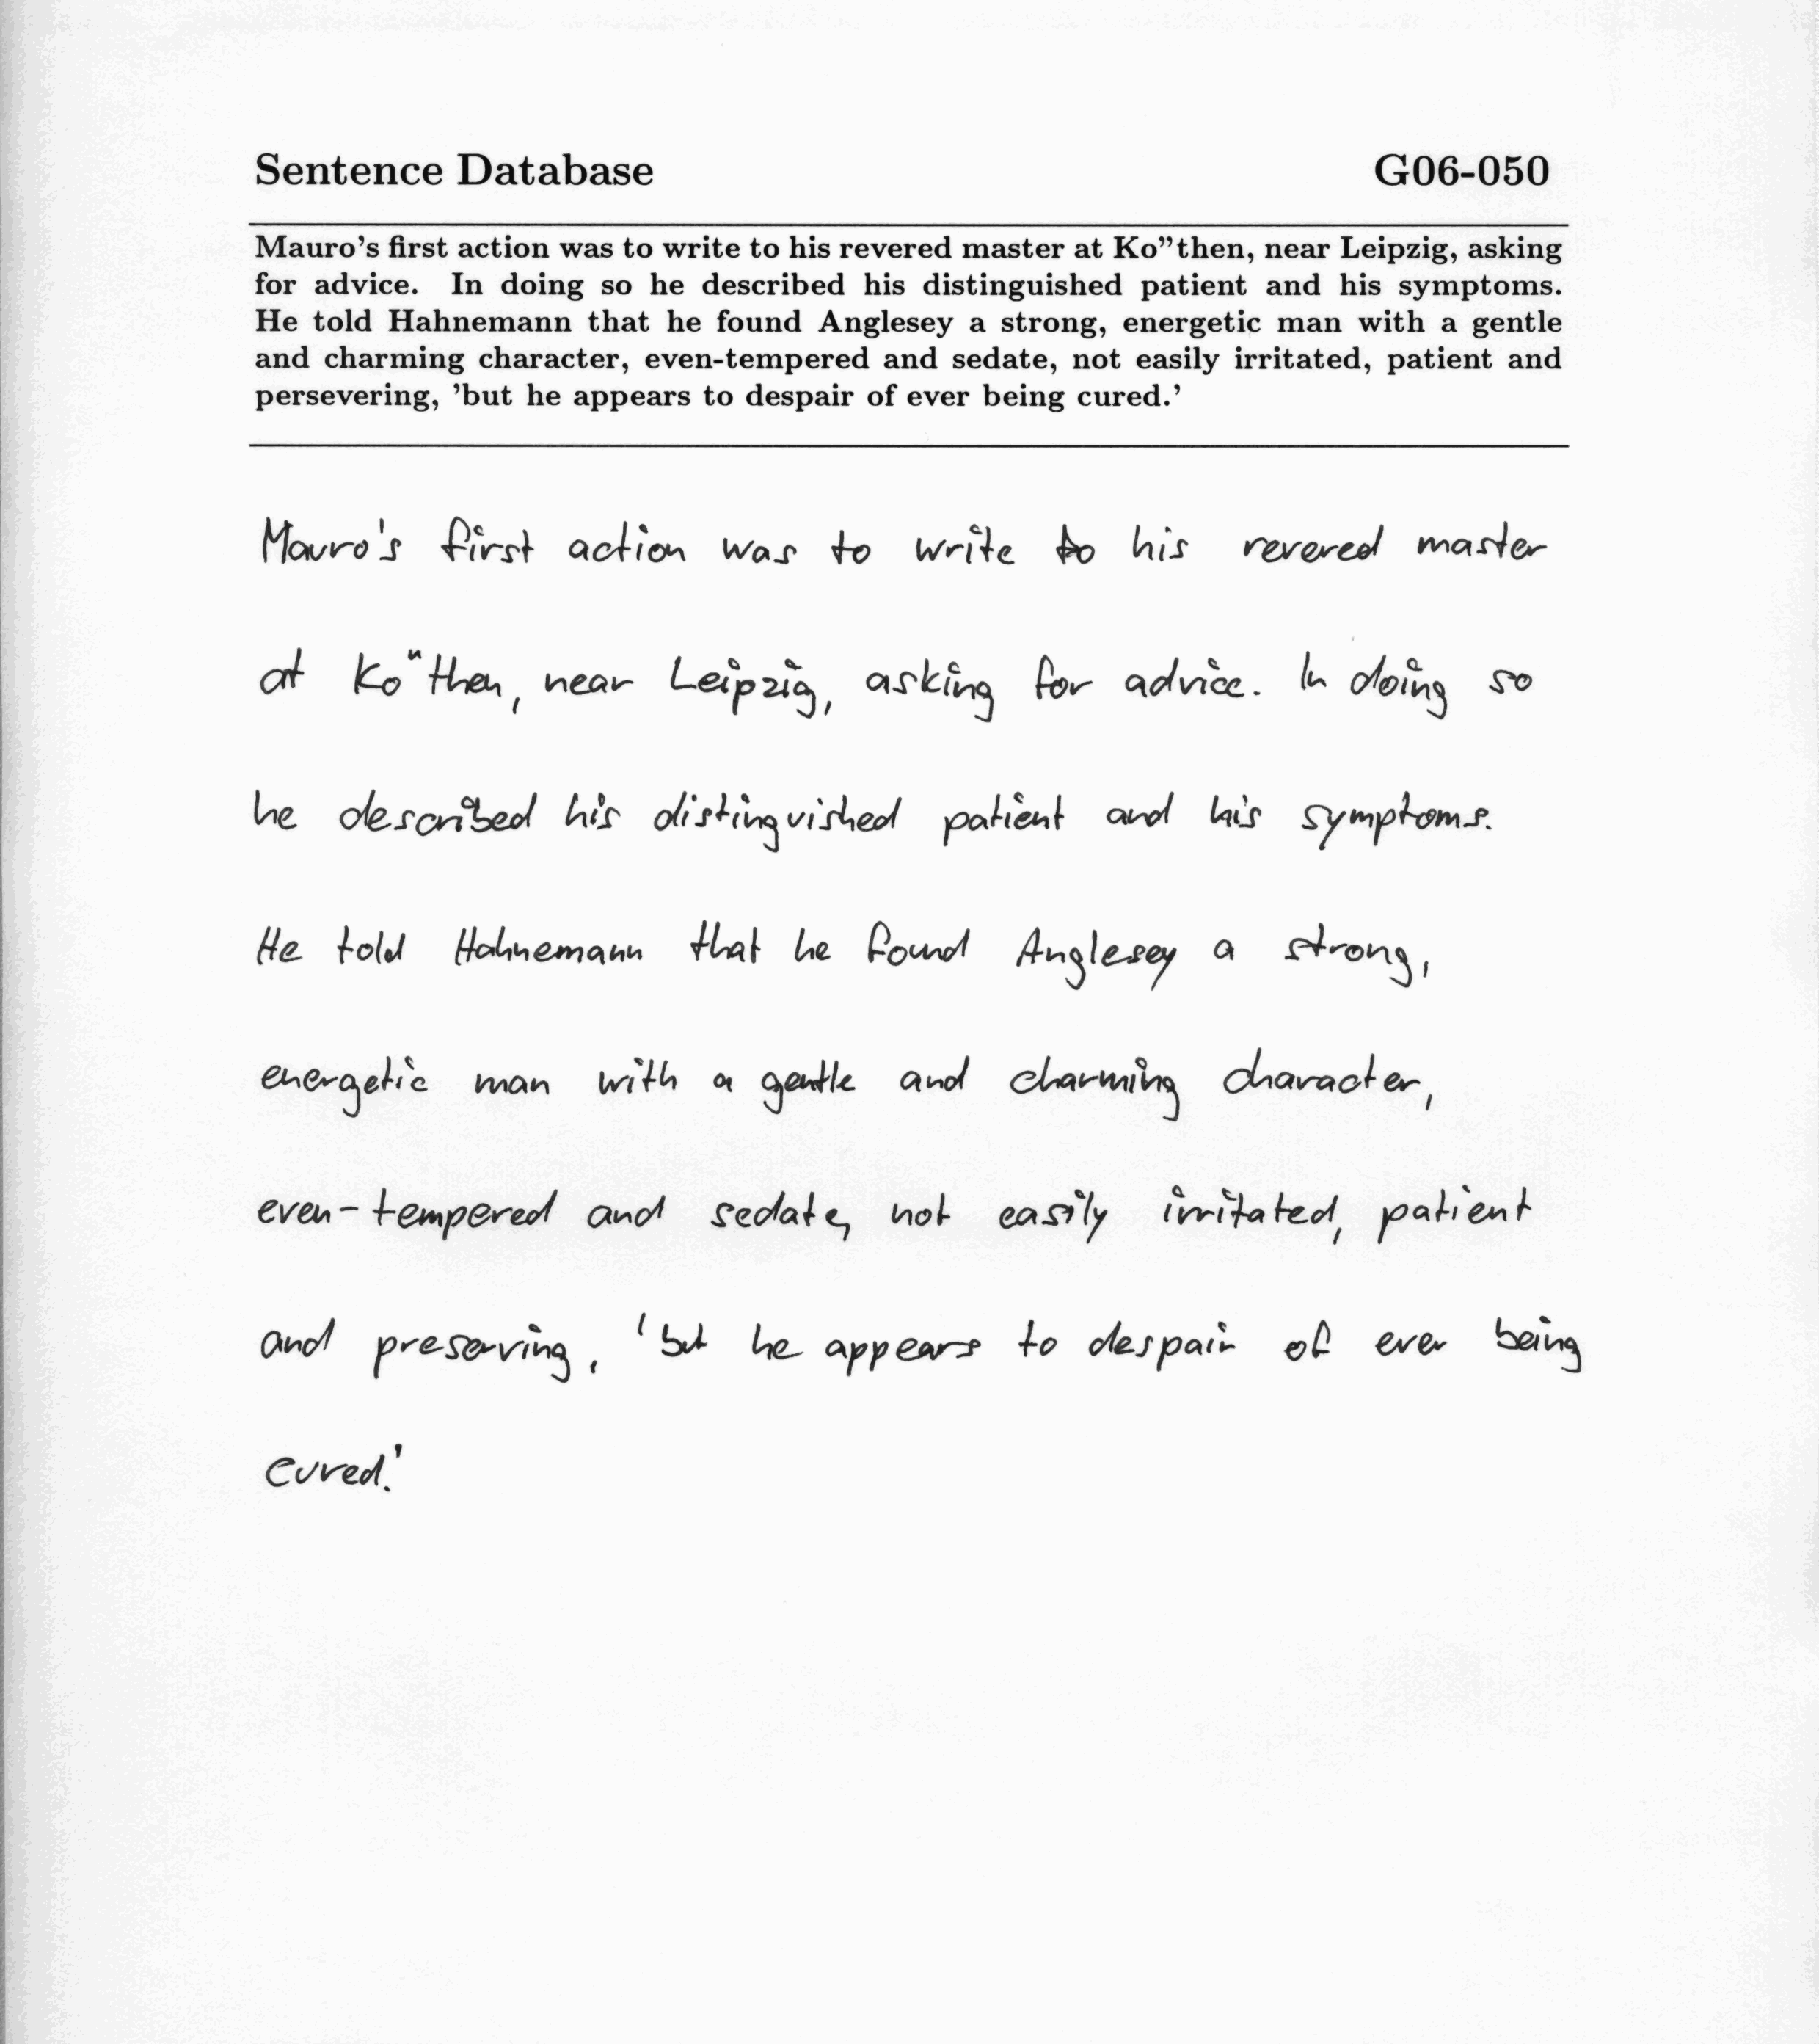 Sentence Database G06-050
Mauro's first action was to write to his revered master at Ko"then, near Leipzig, asking
for advice. In doing so he described his distinguished patient and his symptoms.
He told Hahnemann that he found Anglesey a strong, energetic man with a gentle
and charming character, even-tempered and sedate, not easily irritated, patient and
persevering, 'but he appears to despair of ever being cured.'
Mauro's first action was to write to his revered master
at Ko"then, near Leipzig, asking for advice. In doing so
he described his distinguished patient and his symptoms.
He told Hahnemann that he found Anglesey a strong,
energetic man with a gentle and charming character,
even-tempered and sedate, not easily irritated, patient
and preserving, 'but he appears to despair of ever being
cured.'